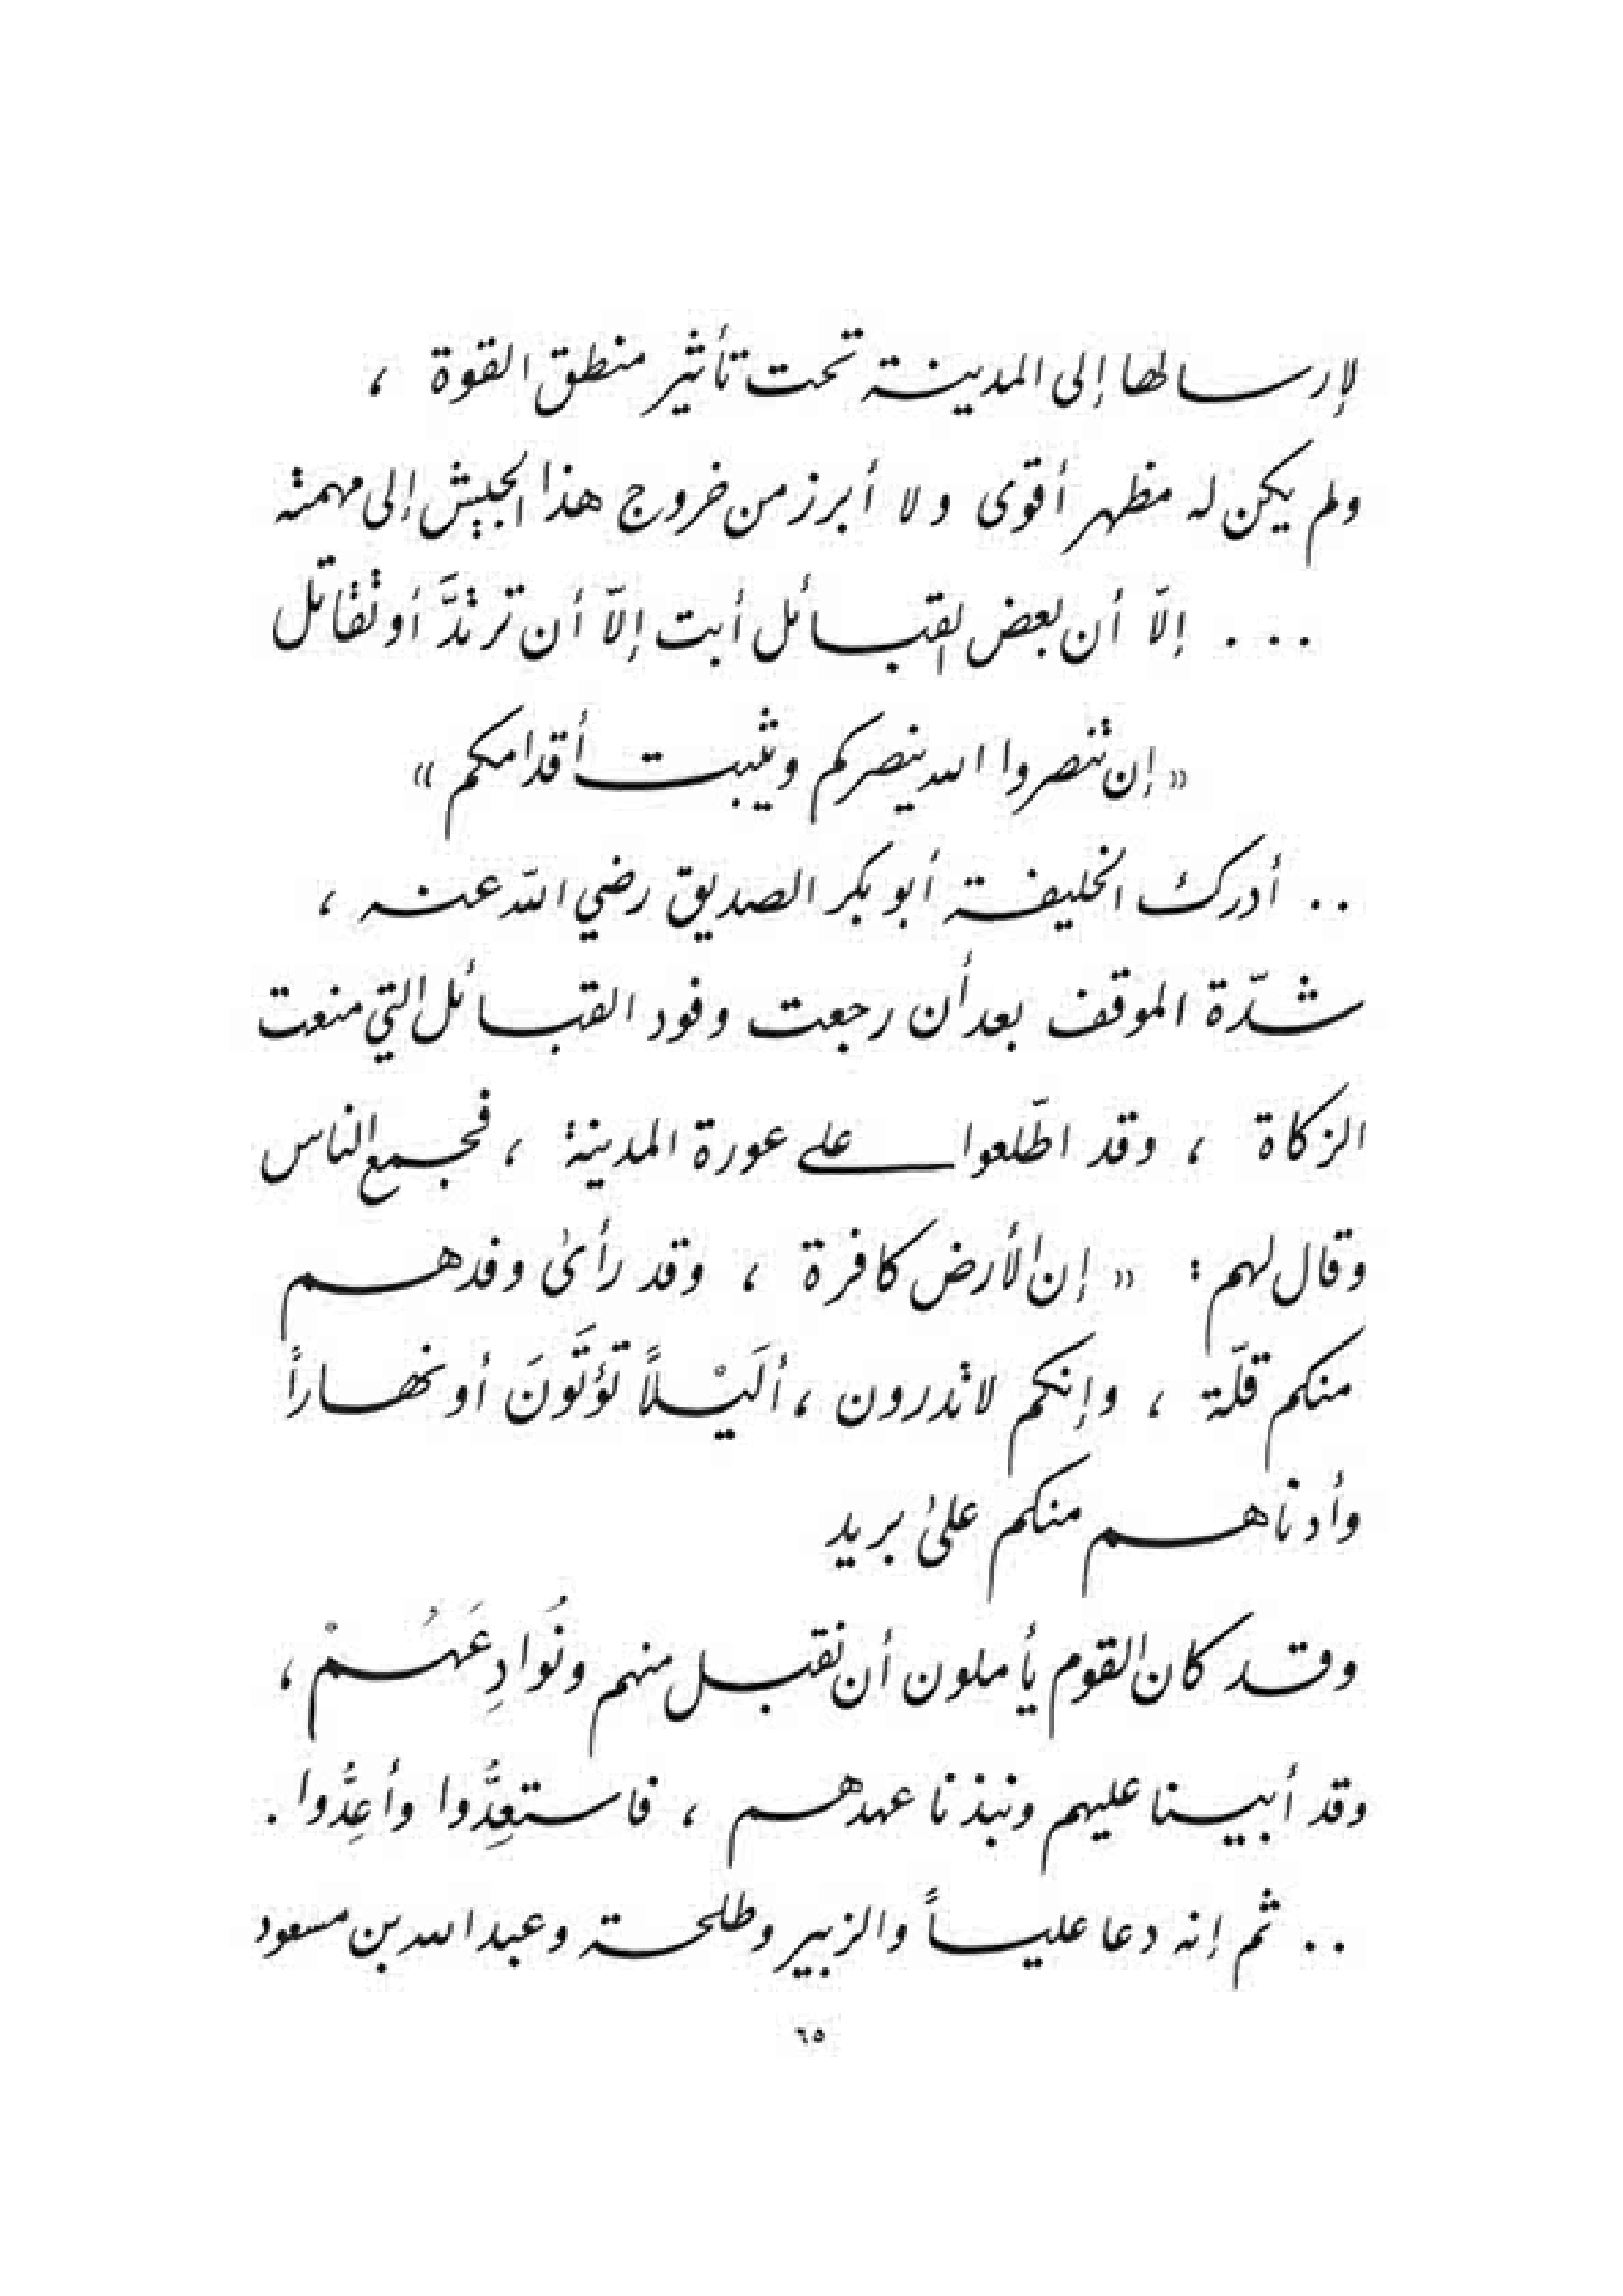 لإرسالها إلى المدينة تحت تأثير منطق القوة ،
ولم يكن له مظهر أقوى ولا أبرز من خروج هذا الجيش إلى مهمته
... إلّا أن بعض القبائل أبت إلّا أن ترتدَّ أو تقاتل
« إن تنصروا الله ينصركم ويثبت أقدامكم »
.. أدرك الخليفة أبو بكر الصديق رضي الله عنه ،
شدّة الموقف بعد أن رجعت وفود القبائل التي منعت
الزكاة ، وقد اطّلعوا على عورة المدينة ، فجمع الناس
وقال لهم : « إن الأرض كافرة ، وقد رأىٰ وفدهم
منكم قلّة ، وإنكم لا تدرون ، ألَيْلاً تؤتَّونَ أو نهاراً
وأدناهم منكم علىٰ بريد
وقد كان القوم يأملون أن نقبل منهم ونُوادِعَهُمْ ،
وقد أبينا عليهم ونبذنا عهدهم ، فاستعِدُّوا وأعِدُّوا .
.. ثم إنه دعا علياً والزبير وطلحة وعبد الله بن مسعود
٦٥